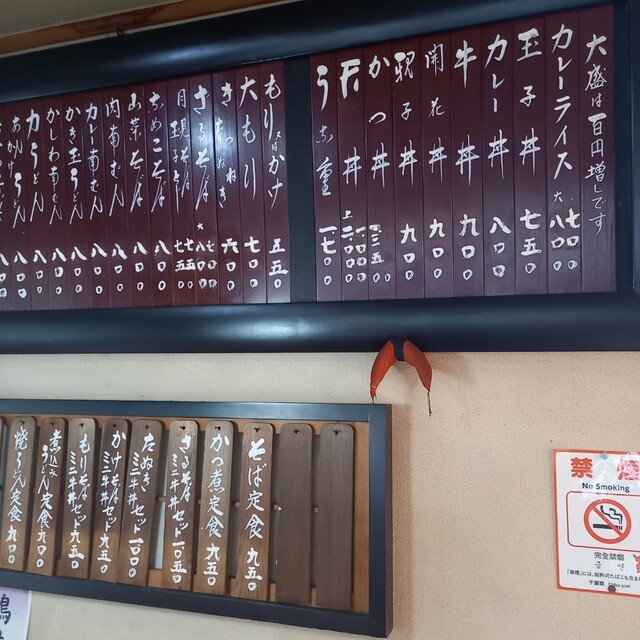 大盛は百円増しです
カレーライス 七〇〇 大八〇〇
玉子丼 七五〇
カレー丼 八〇〇
牛丼 九〇〇
開花丼 九〇〇
親子丼 九〇〇
かつ丼
天丼 上
うな重 一七〇〇
もり かけ 五五〇
大もり 七〇〇
きつね たぬき 六〇〇
ざるそば 七〇〇 大八〇〇
月見 玉子とじ 七五〇
なめこそば 八〇〇
山菜そば 八〇〇
肉南ばん 八〇〇
カレー南ばん 八〇〇
かき玉うどん 八〇〇
かしわ南ばん 八〇〇
力うどん 八〇〇
そば定食 九五〇
かつ煮定食 九五〇
ざるそばミニ牛丼セット 一〇五〇
たぬきミニ牛丼セット 一〇〇〇
かけそばミニ牛丼セット 九五〇
もりそばミニ牛丼セット 九五〇
煮込みうどん定食 九〇〇
焼うどん定食 九〇〇
禁煙
No Smoking
完全禁煙
금연
「禁煙」には、加熱式たばこも含まれ
千葉県 Chiba pref.